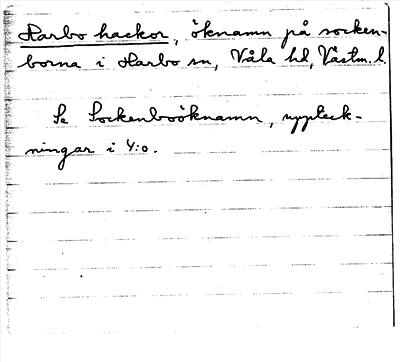 Harbo hackor, öknamn på socken-
borna i Harbo sn, Våla hd, Västm. l.
Se Sockenboöknamn, uppteck-
ningar i 4:o.